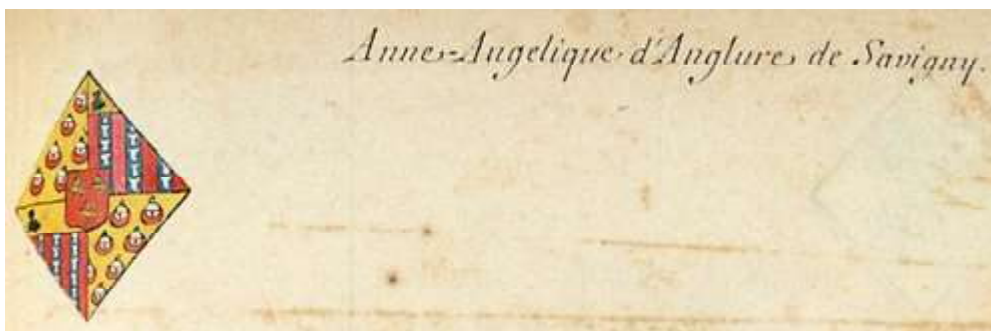 Anne-Angelique d'Anglure de Savigny.